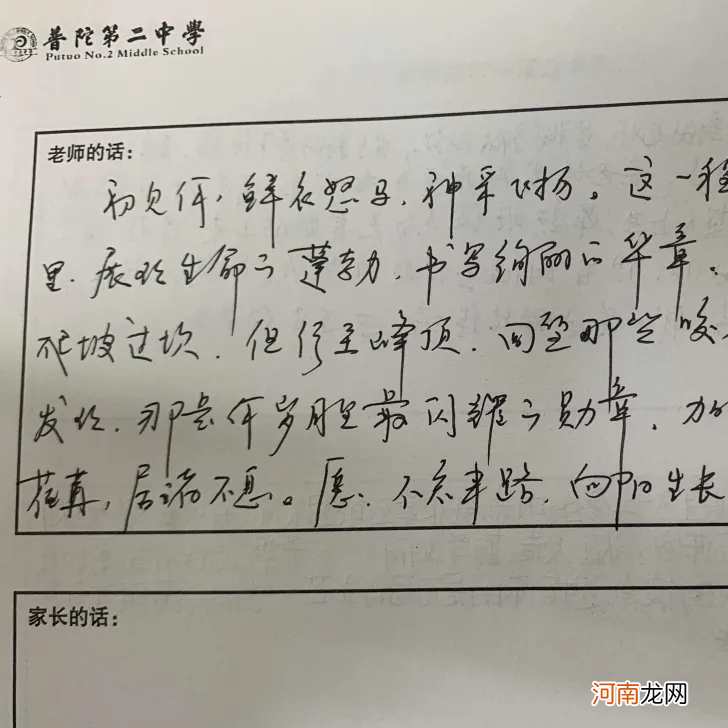 普陀第二中學
Putuo No.2 Middle School
老师的话:
初见你,鲜衣怒马,神采飞扬。这一程
里,展现生命之蓬勃,书写绚丽的华章。
爬坡过坎,但行至峰顶,回望那些咬
发现,那是你岁月里最闪耀之勋章,
荏苒,居诸不息。愿,不忘来路,向阳生长
家长的话:
河南龙网